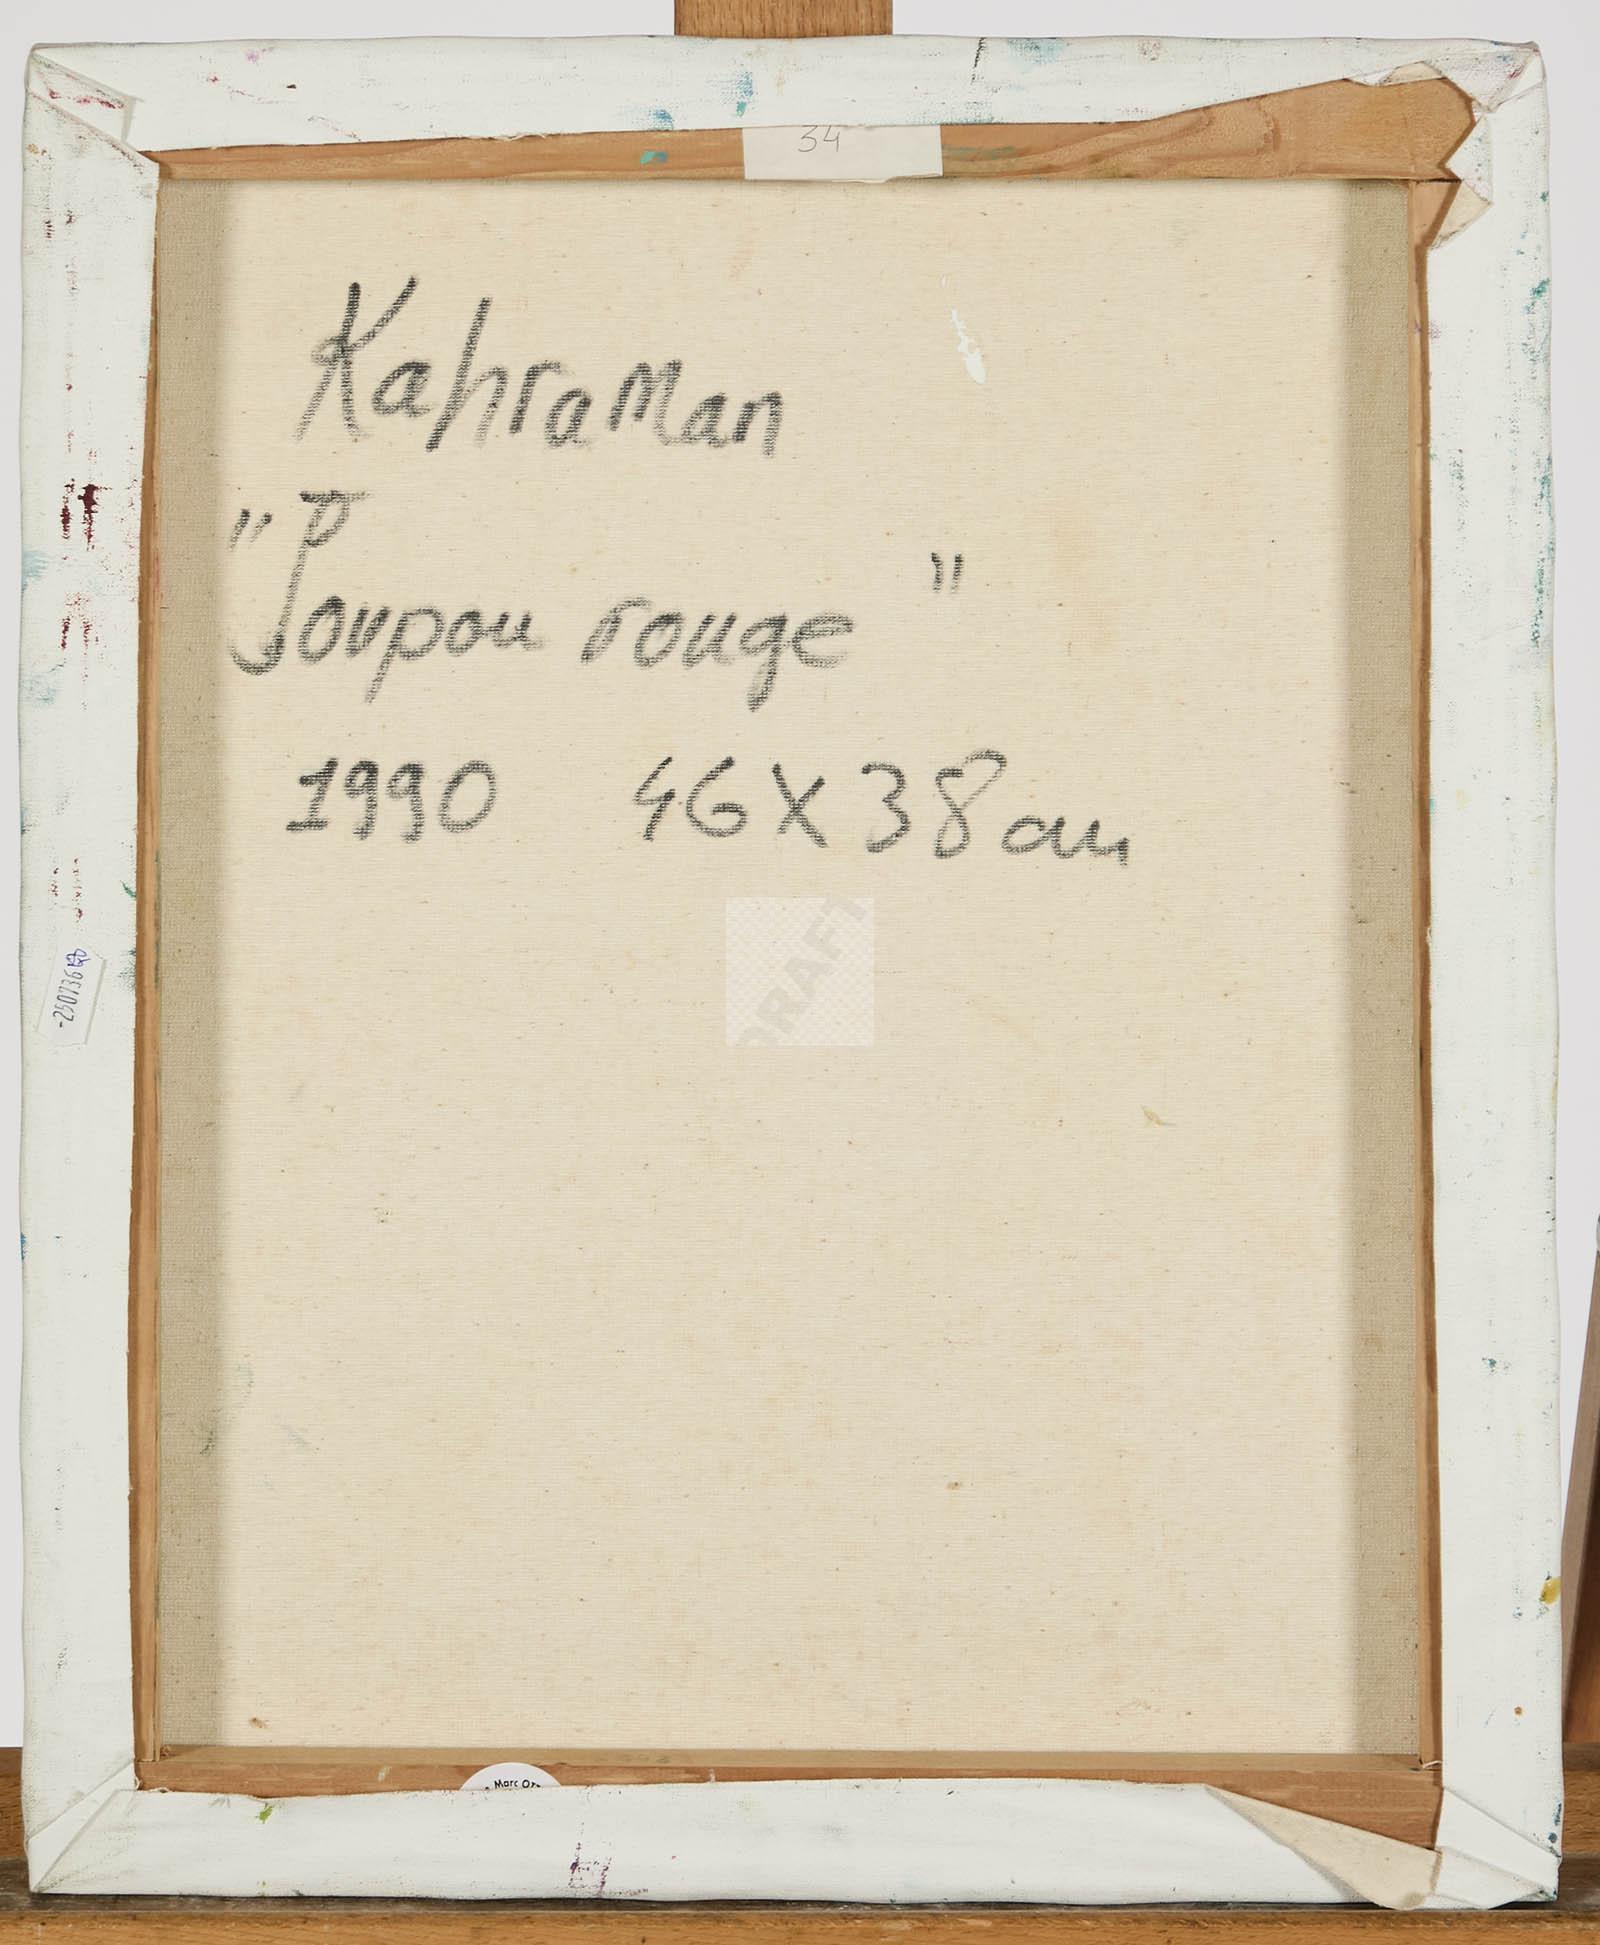 34
Kahraman
"Poupou rouge"
1990 46X38 cm
-250736
DRAFT
Marc